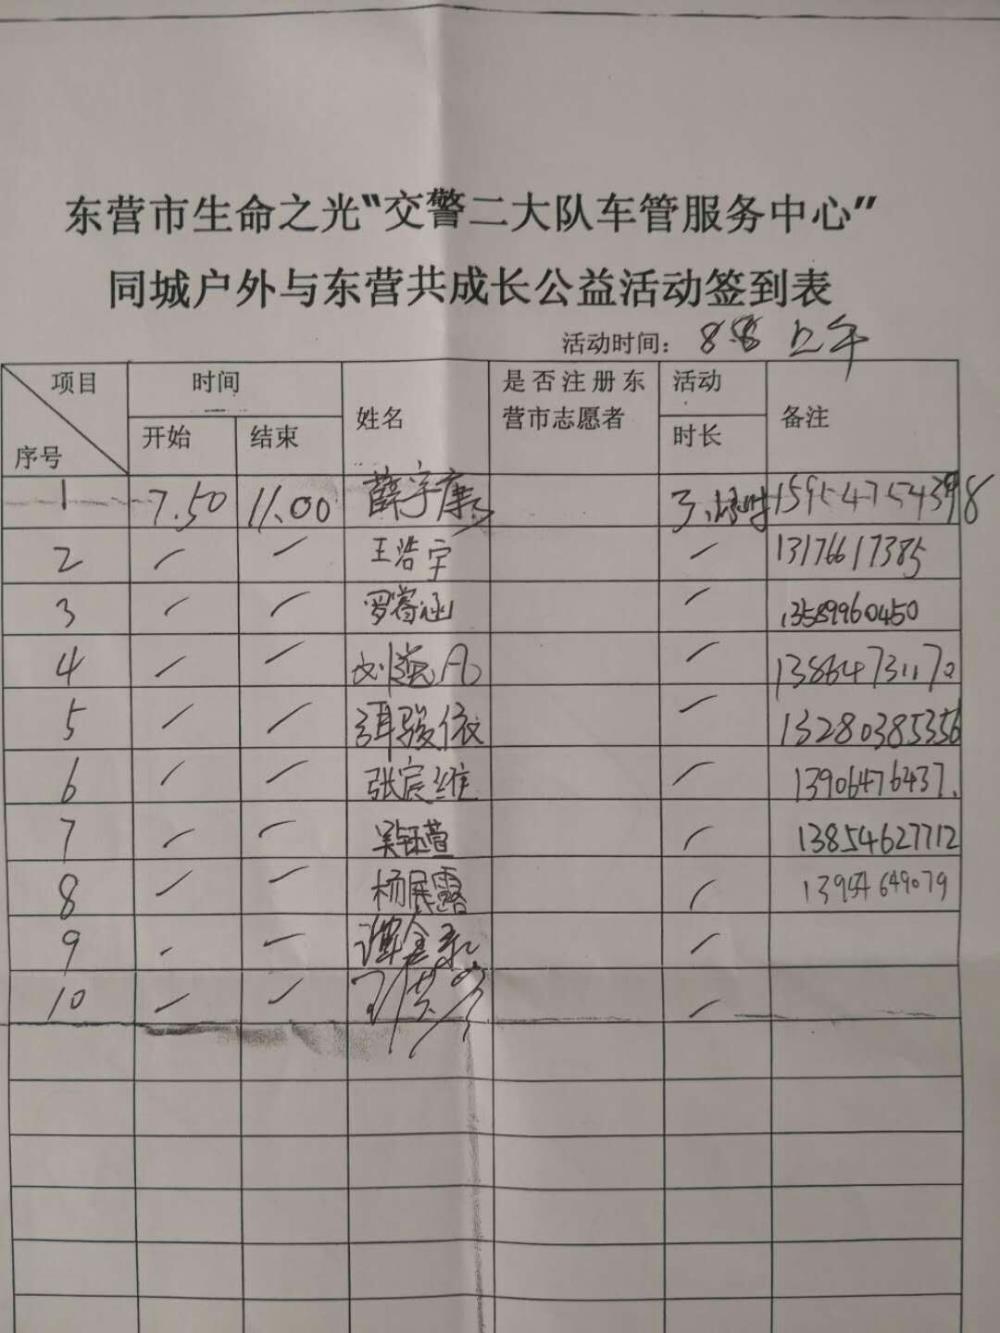 东营市生命之光“交警二大队车管服务中心”
同城户外与东营共成长公益活动签到表
活动时间： 8.8 上午
项目 时间 姓名 是否注册东营市志愿者 活动时长 备注
序号 开始 结束
1 7.50 11.00 薛宇康 3小时
2 王浩宇 13176617385
3 罗睿涵 13589960450
4 刘 13864731170
5 骏依 13280385356
6 张宸维 13906476437.
7 吴钰萱 13854627712
8 杨展露 13954649079
9 谭金
10